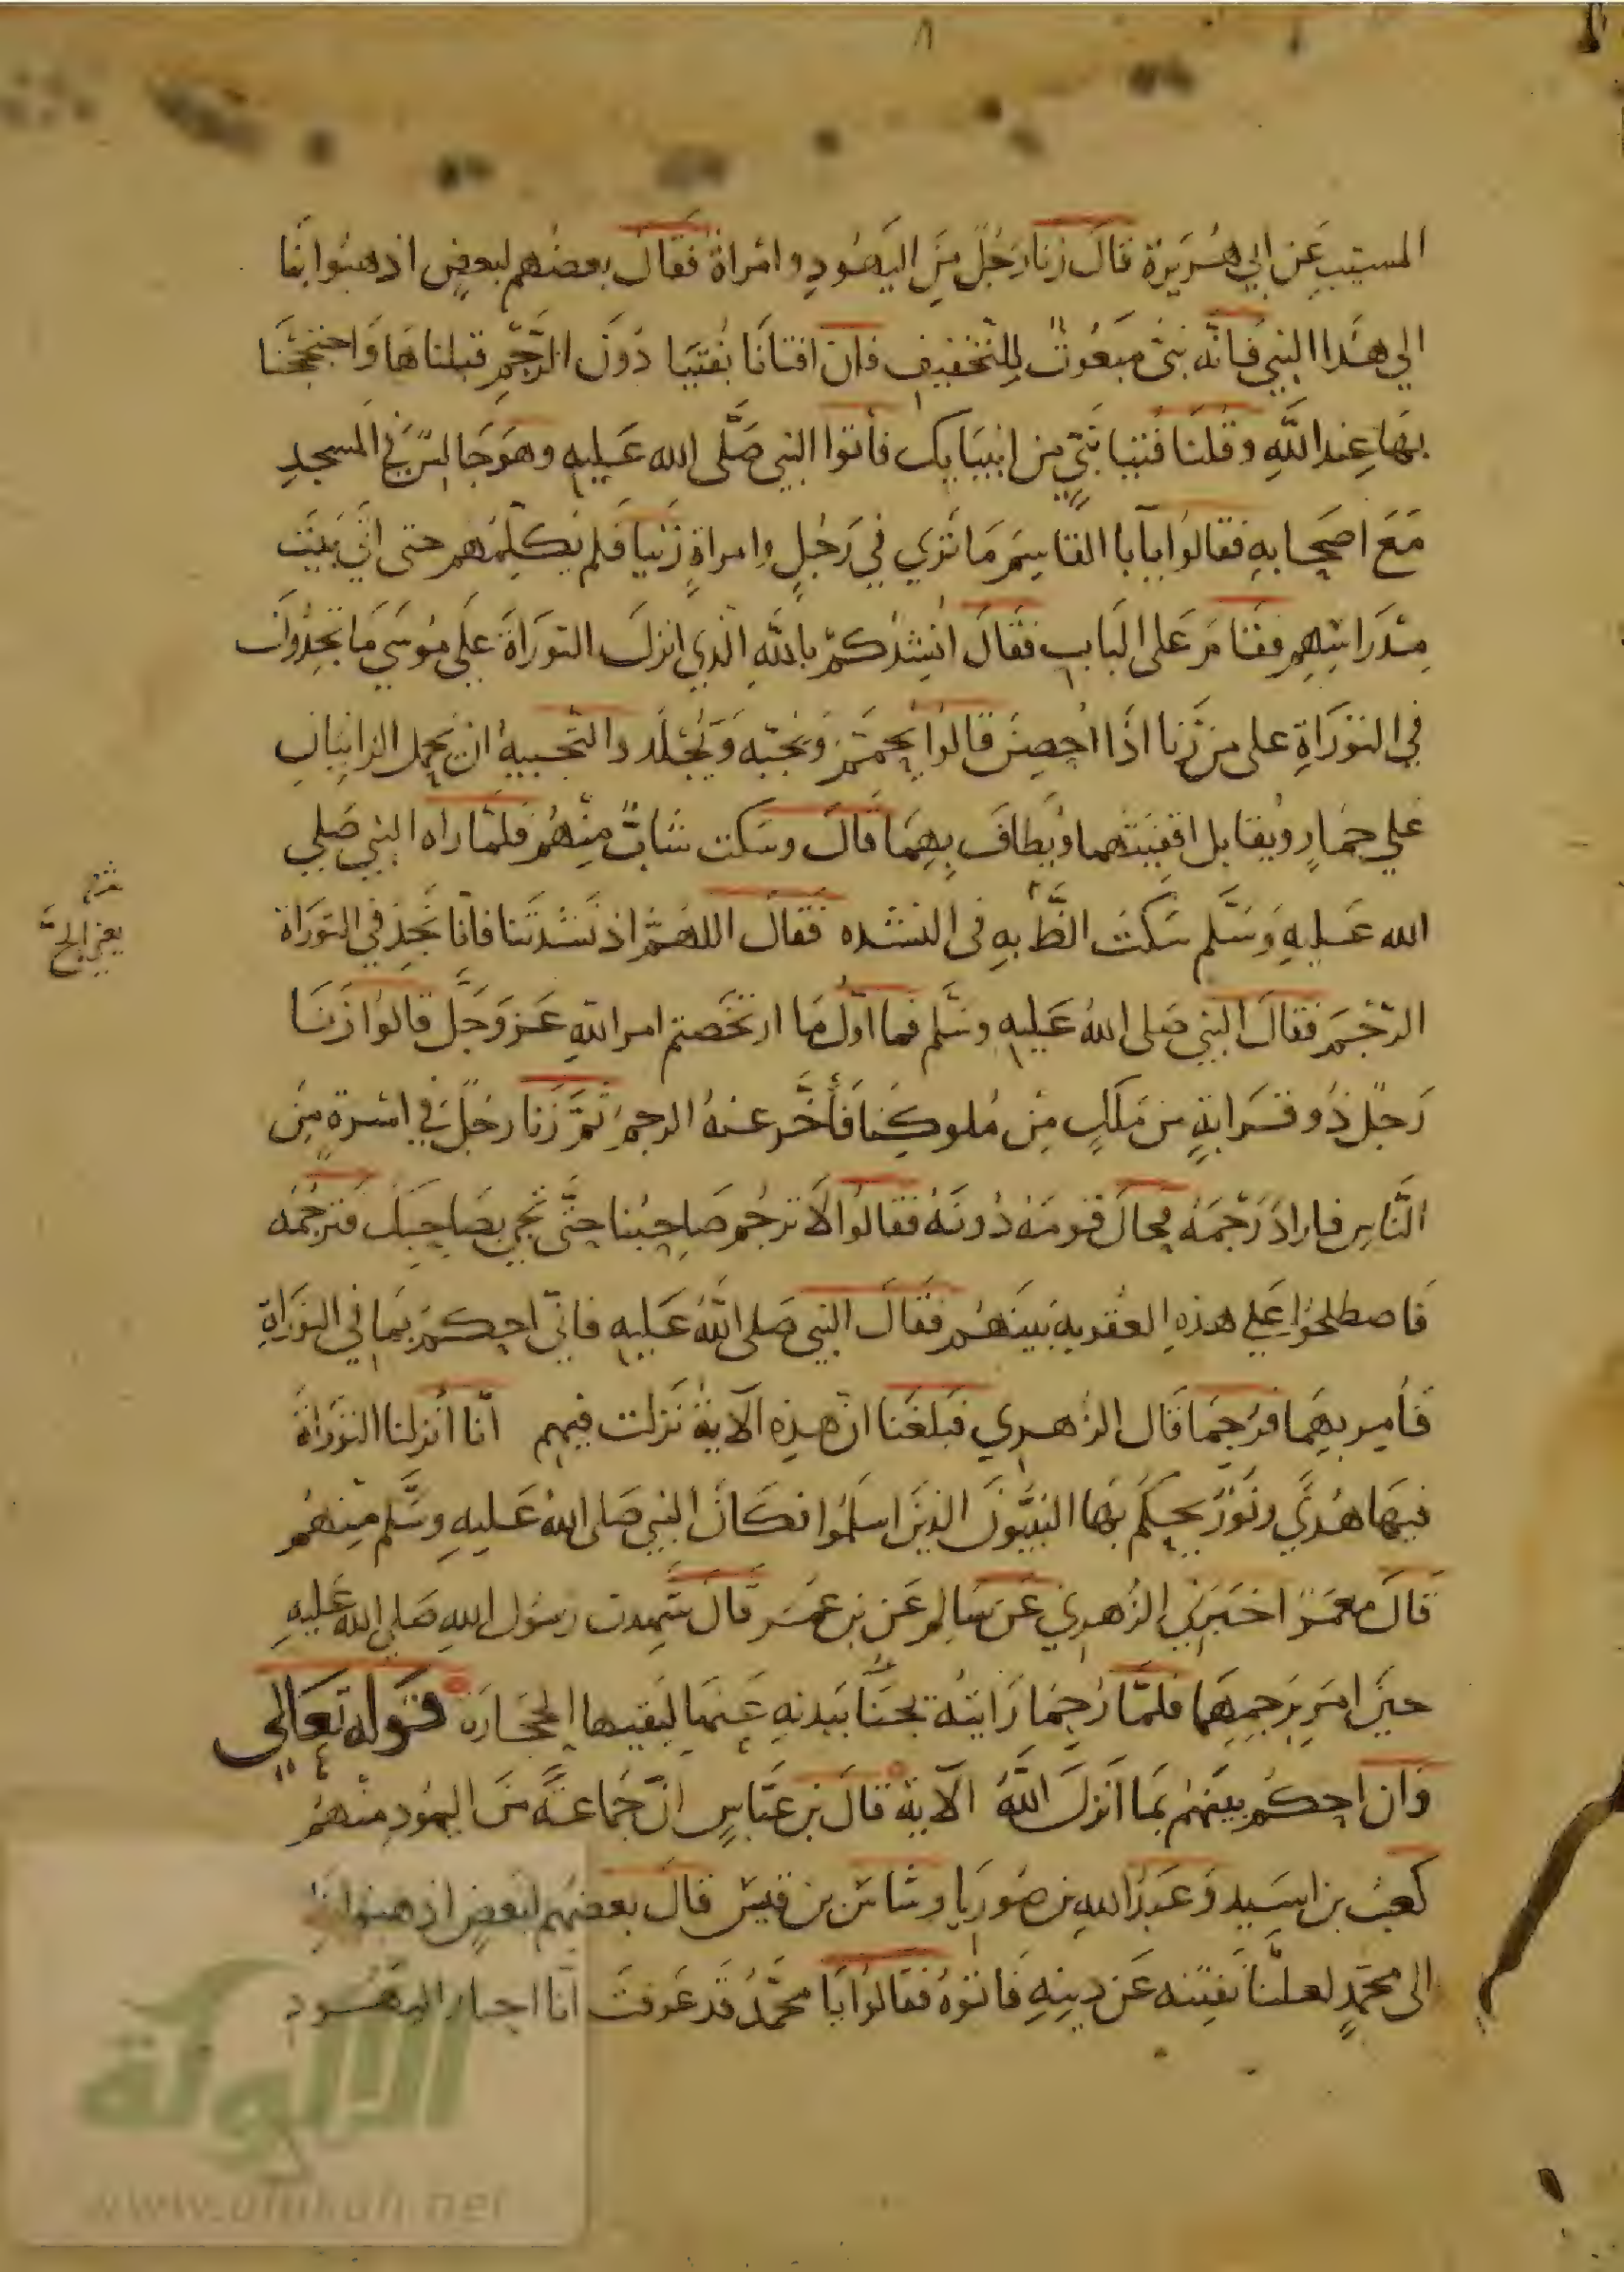 ٨
المسيب عن ابي هُرَيرة قال زنا رجُل من اليهُود وامرأة فقال بعضهم لبعض اذهبوا بنا
الي هذا النبي فانه نبي مبعوث للتخفيف فان افتانا بفتيا دون الرجم قبلناها واحتججنا
بها عند الله وقلنا فتيا نبي من انبيايك فأتوا النبي صلى الله عليه وهو جالس في المسجد
مع اصحابه فقالوا يأبا القاسم ما تري في رجل وامراة زنيا فلم يكلمهم حتى اتي بيت
مدراسهم فقام على الباب فقال انشدكم بالله الذي انزل التوراة على موسي ما تجدون
في التوراة على من زنا اذا احصن قالوا يحمم ويجبه ويجلد والتجبيه ان يحمل الزانيان
علي حمار ويقابل اقفيتهما ويطاف بهما قال وسكت شاب منهم فلما راه النبي صلي
الله عليه وسلم سكت الظ به في النشده فقال اللهم اذ نشدتنا فانا نجد في التوراة
يعني الح
الرجم فقال النبي صلى الله عليه وسلم فما اول ما ارتخصتم امر الله عز وجل قالوا زنا
رجل ذو قرابة من ملك من ملوكنا فأخر عنه الرجم ثم زنا رجل في اسرة من
الناس فاراد رجمه فحال قومه دونه فقالوا لا ترجم صاحبنا حتى تجي بصاحبك فترجمه
فاصطلحوا علي هذه العقوبة بينهم فقال النبي صلى الله عليه فاني احكم بما في التوراة
فأمر بهما فرجما قال الزهري فبلغنا ان هذه الآية نزلت فيهم انا أنزلنا التوراة
فيها هدي ونور يحكم بها النبيون الذين اسلموا فكان النبي صلى الله عليه وسلم منهم
قال معمر اخبرني الزهري عن سالم عن بن عمر قال شهدت رسول الله صلي الله عليه
حين امر برجمهما فلما رجما رايته يجنأ بيديه عنها ليقيها الحجارة قوله تعالى
وان احكم بينهم بما انزل الله الآية قال بن عباس ان جماعة من اليهود منهم
كعب بن اسيد وعبد الله بن صوريا وشاس بن قيس قال بعضهم لبعض اذهبوا بنا
الى محمد لعلنا نفتنه عن دينه فاتوه فقالوا يا محمد قد عرفت انا احبار اليهود
الألوكة
www.alukah.net